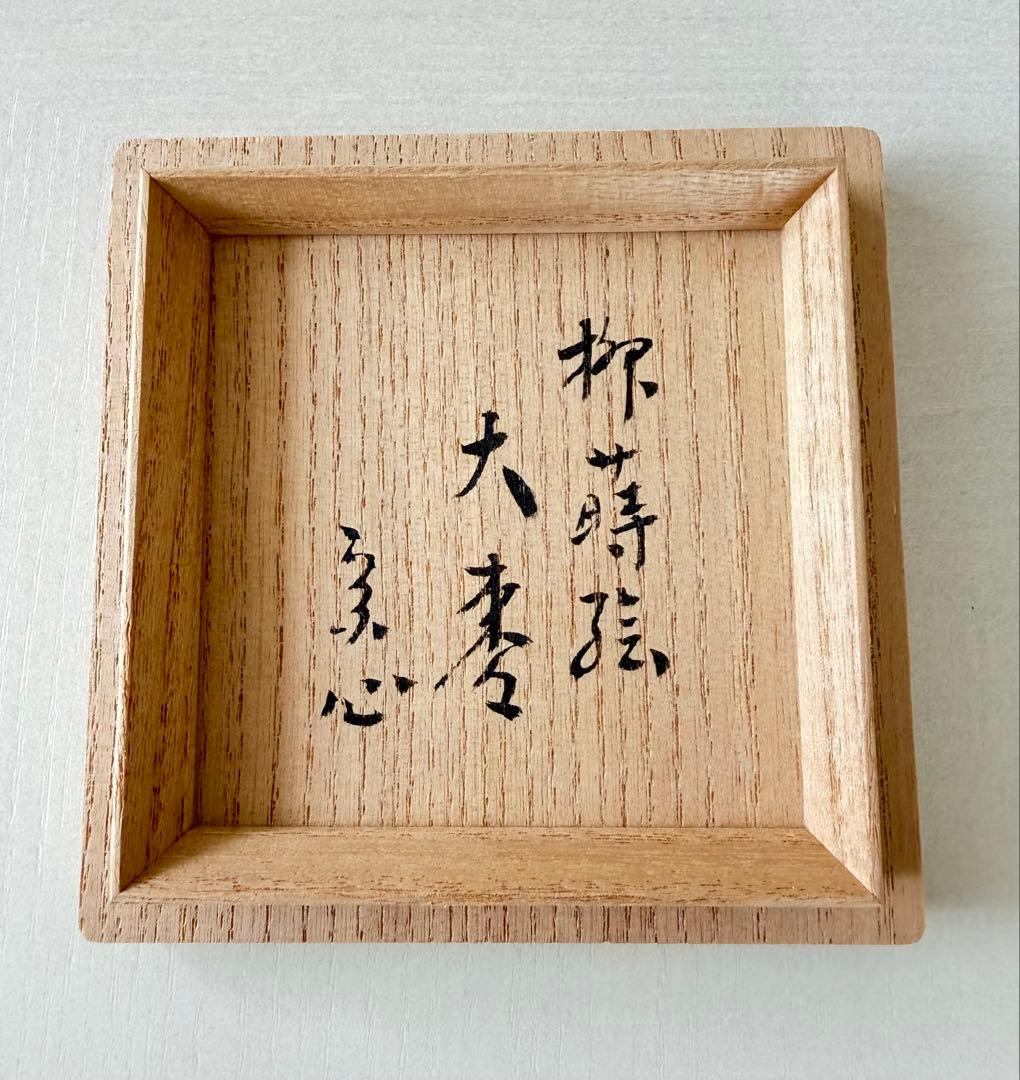 柳蒔絵
大棗
宗心